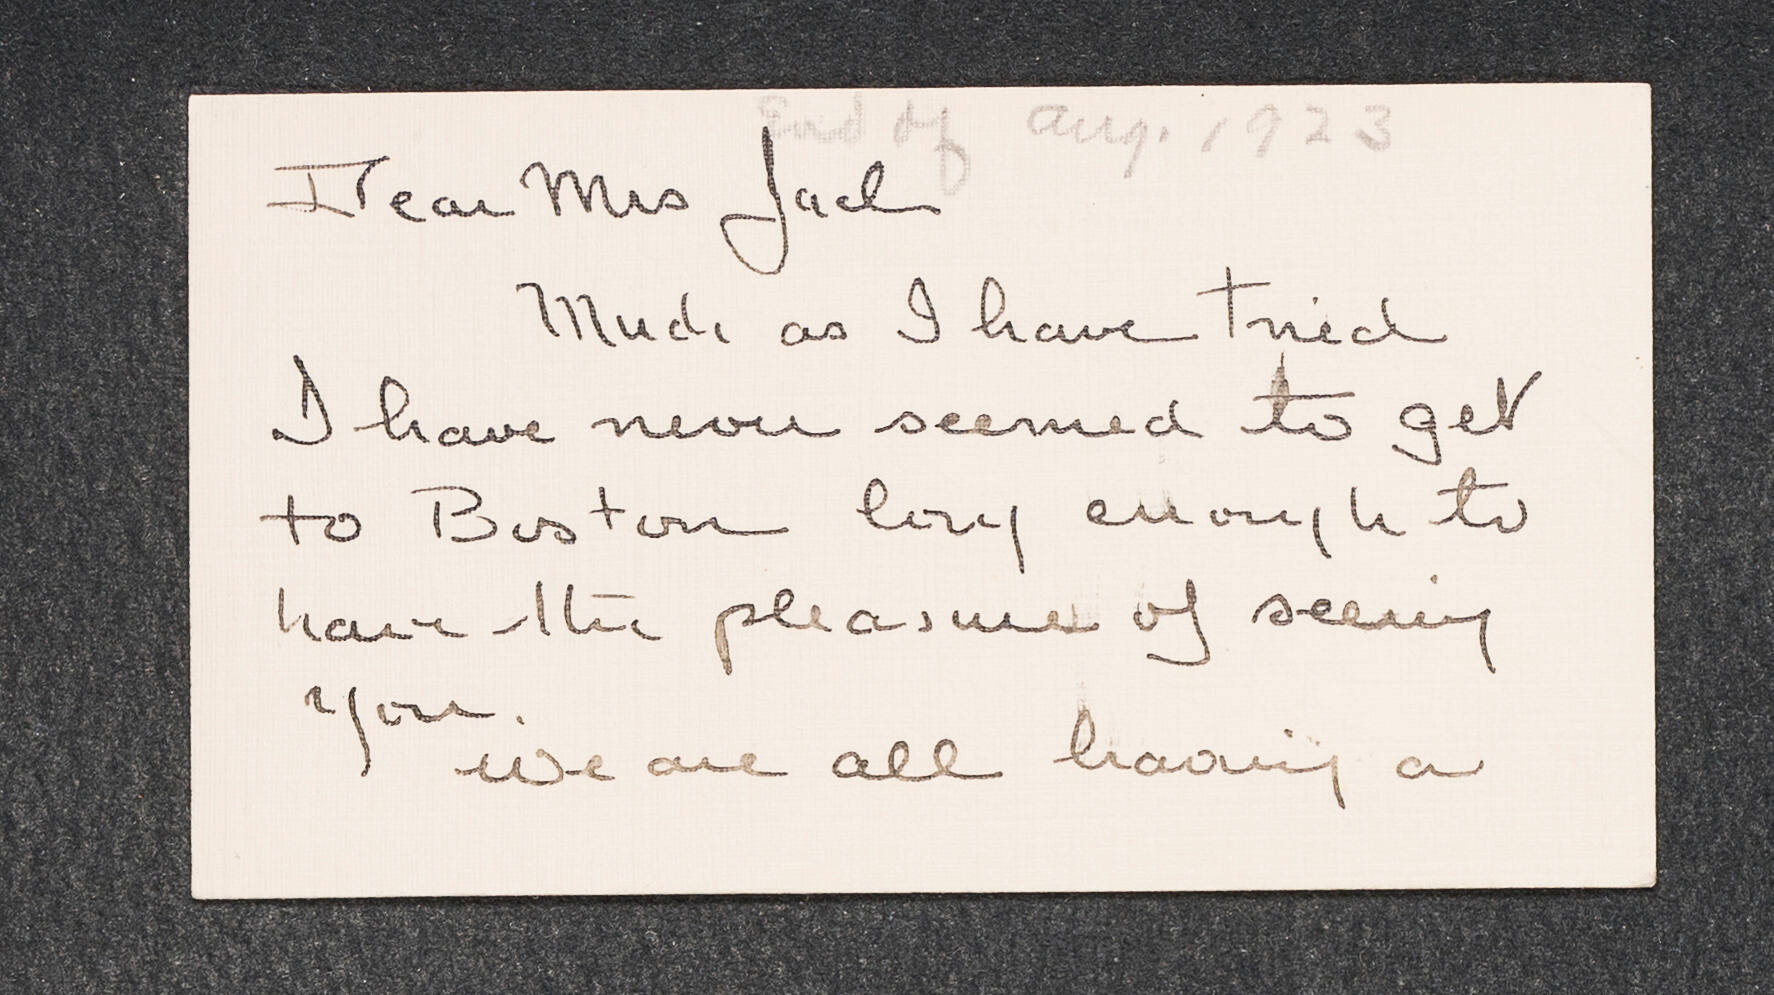 End of Aug. 1923
Dear Mrs Jack
Much as I have tried
I have never seemed to get
to Boston long enough to
have the pleasure of seeing
you.
We are all having a